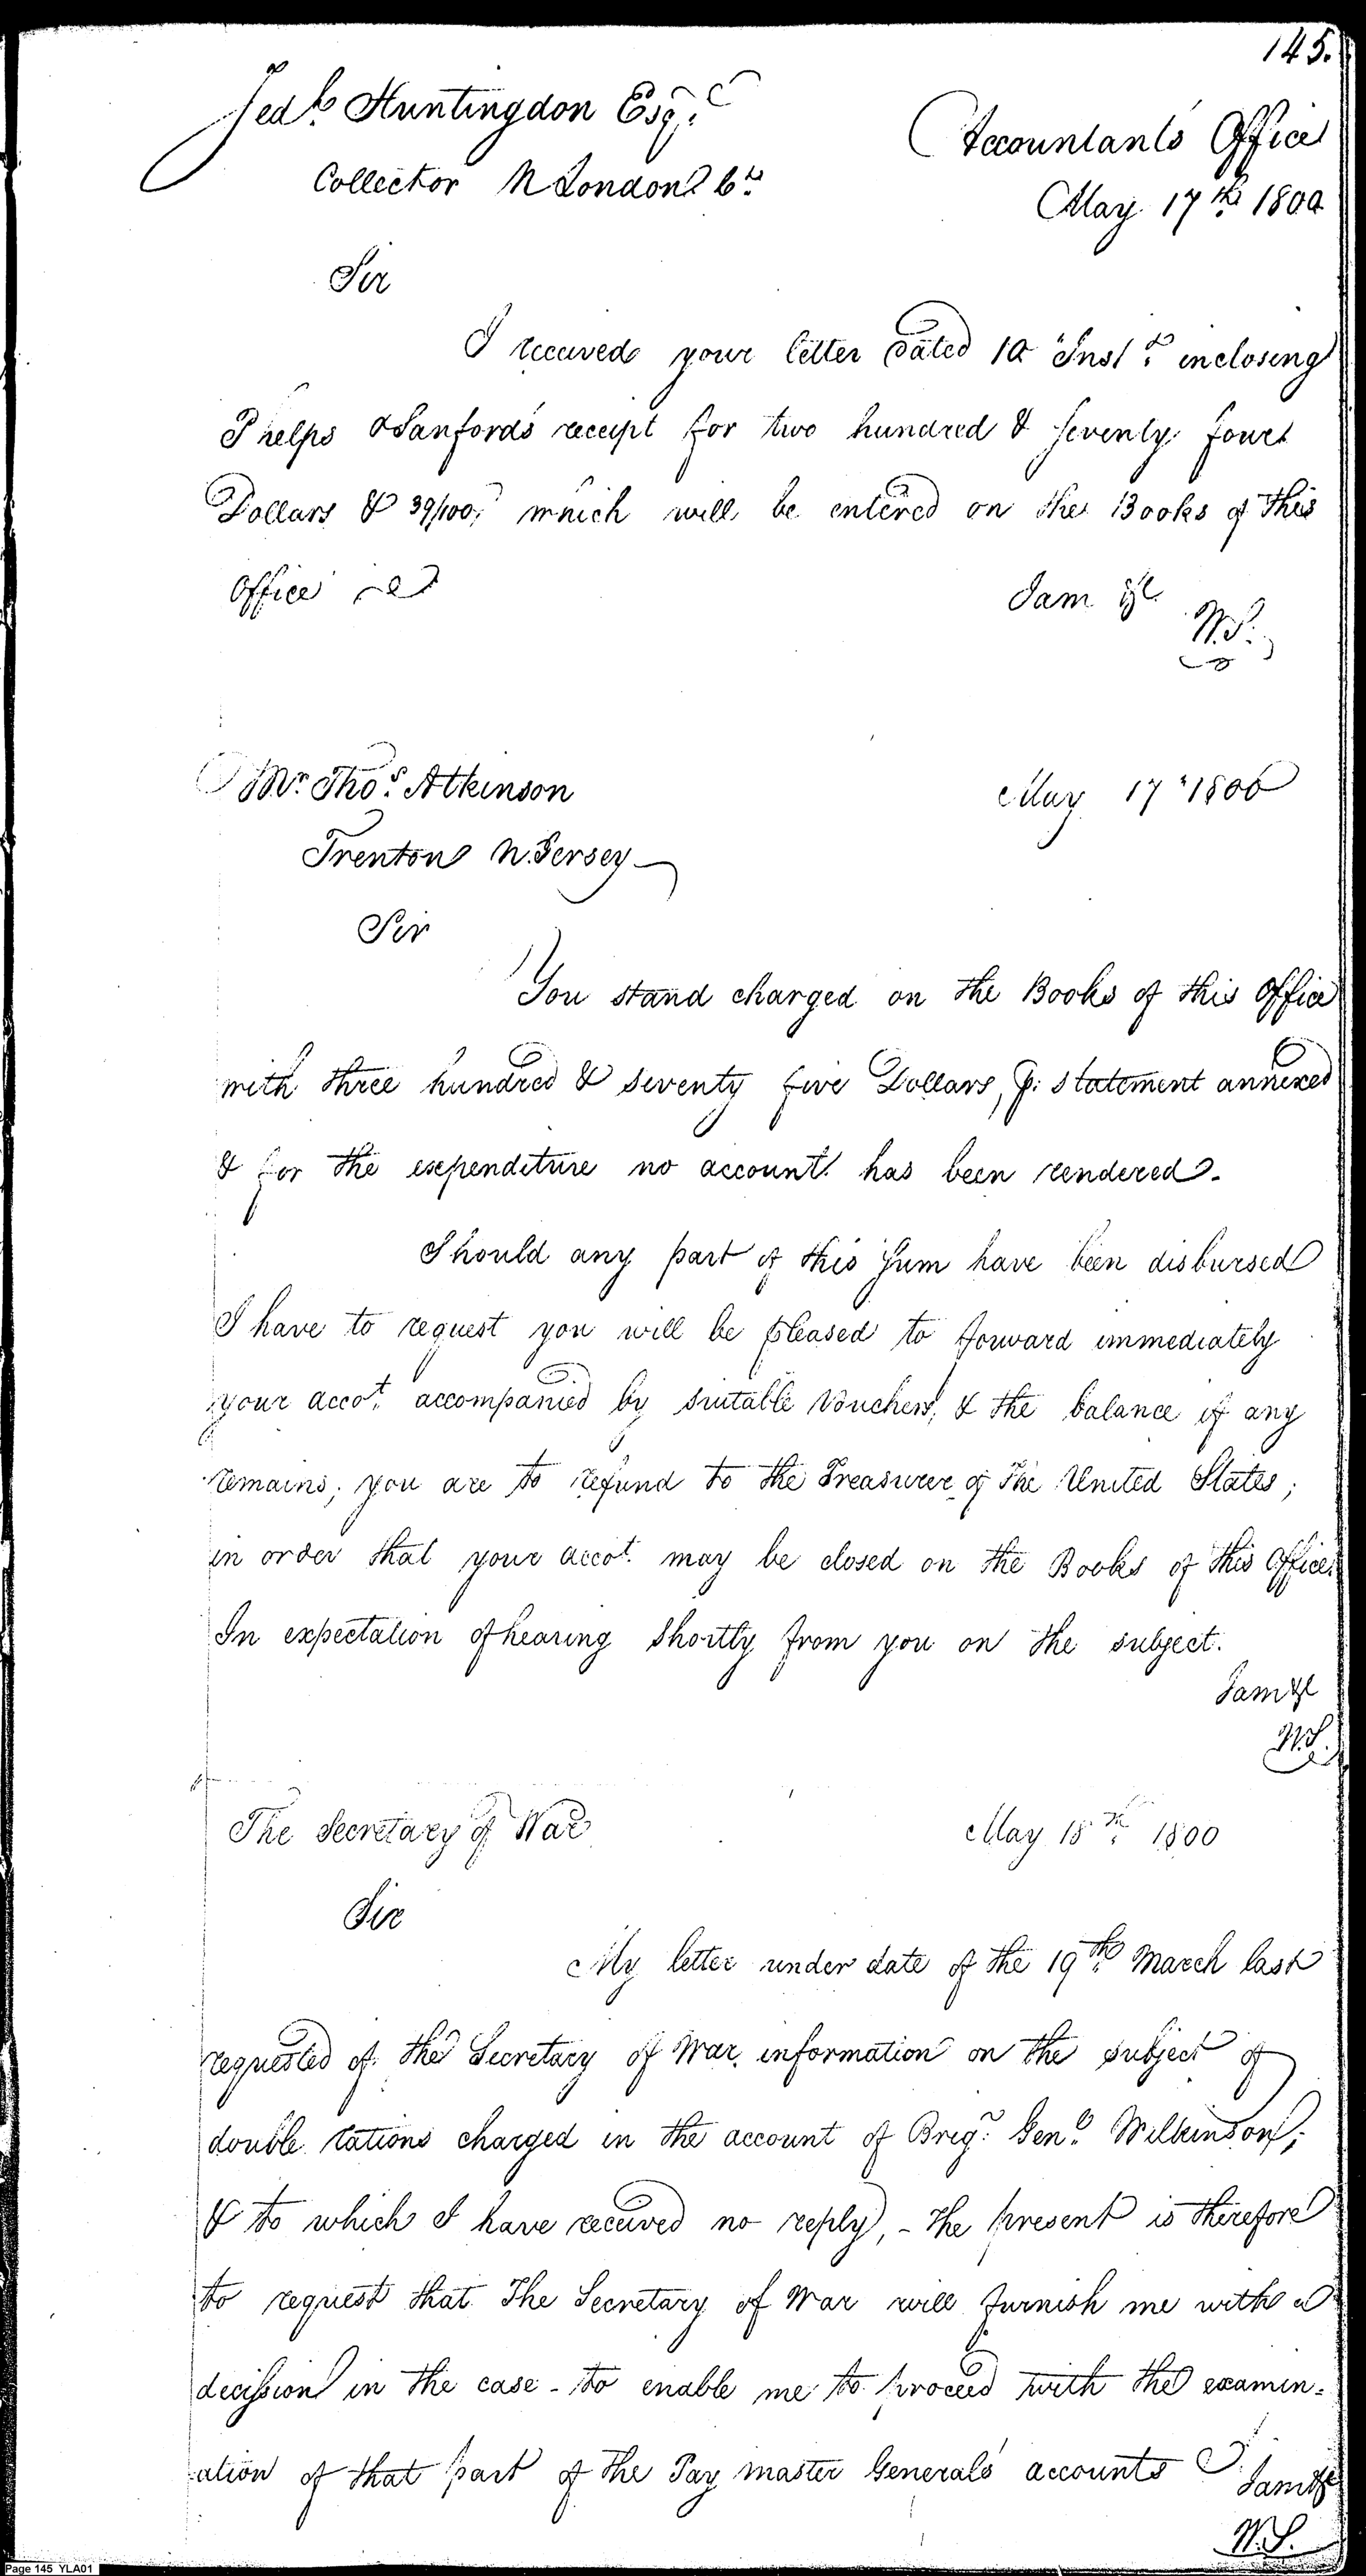 145.
Jedh. Huntingdon Esqr.
Accountants Office
Collector N London Ct.
May 17th. 1800
Sir
I received your letter dated 10 Inst. inclosing
Phelps & Sanford's receipt for two hundred & seventy four
Dollars & 39/100, which will be entered on the Books of this
Office
I am &c
W.S.
Mr. Thos. Atkinson
May 17 1800
Trenton N. Jersey
Sir
You stand charged on the Books of this Office
with three hundred & seventy five Dollars, p: statement annexed
& for the expenditure no account has been rendered.
Should any part of this sum have been disbursed
I have to request you will be pleased to forward immediately
your accot. accompanied by suitable Vouchers, & the balance if any
remains; you are to refund to the Treasurer of The United States;
in order that your accot. may be closed on the Books of this Office.
In expectation of hearing shortly from you on the subject.
I am &c
W.S.
The Secretary of War
May 18th. 1800
Sir
My letter under date of the 19th. March last
requested of the Secretary of War, information on the subject of
double rations charged in the account of Brigr. Genl. Wilkinson;
& to which I have received no reply, - the present is therefore
to request that The Secretary of War will furnish me with a
decission in the case - to enable me to proceed with the examin=
ation of that part of the Pay master Generals accounts
I am &c
W.S.
Page 145 YLA01